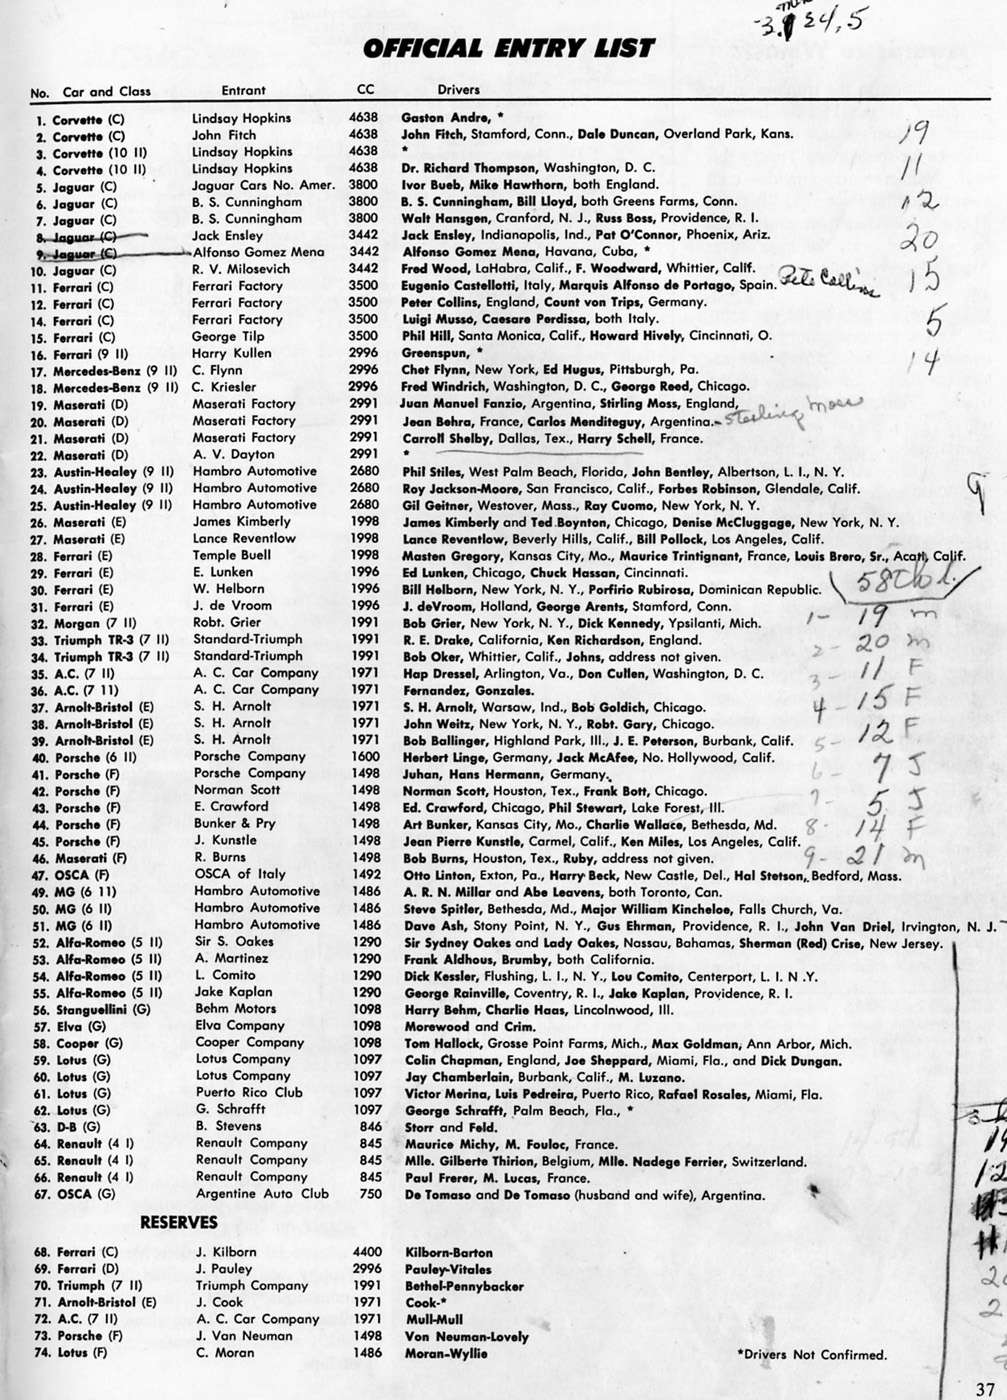 -3. 24,5
OFFICIAL ENTRY LIST
No. Car and Class Entrant CC Drivers
1. Corvette (C) Lindsay Hopkins 4638 Gaston Andre, *
2. Corvette (C) John Fitch 4638 John Fitch, Stamford, Conn., Dale Duncan, Overland Park, Kans.
19
3. Corvette (10 II) Lindsay Hopkins 4638 *
4. Corvette (10 II) Lindsay Hopkins 4638 Dr. Richard Thompson, Washington, D. C.
11
5. Jaguar (C) Jaguar Cars No. Amer. 3800 Ivor Bueb, Mike Hawthorn, both England.
6. Jaguar (C) B. S. Cunningham 3800 B. S. Cunningham, Bill Lloyd, both Greens Farms, Conn.
12
7. Jaguar (C) B. S. Cunningham 3800 Walt Hansgen, Cranford, N. J., Russ Boss, Providence, R. I.
8. Jaguar (C) Jack Ensley 3442 Jack Ensley, Indianapolis, Ind., Pat O'Connor, Phoenix, Ariz.
20
9. Jaguar (C) Alfonso Gomez Mena 3442 Alfonso Gomez Mena, Havana, Cuba, *
10. Jaguar (C) R. V. Milosevich 3442 Fred Wood, LaHabra, Calif., F. Woodward, Whittier, Calif.
11. Ferrari (C) Ferrari Factory 3500 Eugenio Castellotti, Italy, Marquis Alfonso de Portago, Spain. Pete Collins 15
12. Ferrari (C) Ferrari Factory 3500 Peter Collins, England, Count von Trips, Germany.
14. Ferrari (C) Ferrari Factory 3500 Luigi Musso, Caesare Perdissa, both Italy.
5
15. Ferrari (C) George Tilp 3500 Phil Hill, Santa Monica, Calif., Howard Hively, Cincinnati, O.
16. Ferrari (9 II) Harry Kullen 2996 Greenspun, *
14
17. Mercedes-Benz (9 II) C. Flynn 2996 Chet Flynn, New York, Ed Hugus, Pittsburgh, Pa.
18. Mercedes-Benz (9 II) C. Kriesler 2996 Fred Windrich, Washington, D. C., George Reed, Chicago.
19. Maserati (D) Maserati Factory 2991 Juan Manuel Fanzio, Argentina, Stirling Moss, England,
20. Maserati (D) Maserati Factory 2991 Jean Behra, France, Carlos Menditeguy, Argentina. - Sterling Moss
21. Maserati (D) Maserati Factory 2991 Carroll Shelby, Dallas, Tex., Harry Schell, France.
22. Maserati (D) A. V. Dayton 2991 *
23. Austin-Healey (9 II) Hambro Automotive 2680 Phil Stiles, West Palm Beach, Florida, John Bentley, Albertson, L. I., N. Y.
24. Austin-Healey (9 II) Hambro Automotive 2680 Roy Jackson-Moore, San Francisco, Calif., Forbes Robinson, Glendale, Calif.
9
25. Austin-Healey (9 II) Hambro Automotive 2680 Gil Geitner, Westover, Mass., Ray Cuomo, New York, N. Y.
26. Maserati (E) James Kimberly 1998 James Kimberly and Ted Boynton, Chicago, Denise McCluggage, New York, N. Y.
27. Maserati (E) Lance Reventlow 1998 Lance Reventlow, Beverly Hills, Calif., Bill Pollock, Los Angeles, Calif.
28. Ferrari (E) Temple Buell 1998 Masten Gregory, Kansas City, Mo., Maurice Trintignant, France, Louis Brero, Sr., Acat, Calif.
29. Ferrari (E) E. Lunken 1996 Ed Lunken, Chicago, Chuck Hassan, Cincinnati.
30. Ferrari (E) W. Helborn 1996 Bill Helborn, New York, N. Y., Porfirio Rubirosa, Dominican Republic.
31. Ferrari (E) J. de Vroom 1996 J. deVroom, Holland, George Arents, Stamford, Conn.
32. Morgan (7 II) Robt. Grier 1991 Bob Grier, New York, N. Y., Dick Kennedy, Ypsilanti, Mich. 1- 19 m
33. Triumph TR-3 (7 II) Standard-Triumph 1991 R. E. Drake, California, Ken Richardson, England.
34. Triumph TR-3 (7 II) Standard-Triumph 1991 Bob Oker, Whittier, Calif., Johns, address not given. 2- 20 m
35. A.C. (7 II) A. C. Car Company 1971 Hap Dressel, Arlington, Va., Don Cullen, Washington, D. C. 3- 11 F
36. A.C. (7 11) A. C. Car Company 1971 Fernandez, Gonzales.
37. Arnolt-Bristol (E) S. H. Arnolt 1971 S. H. Arnolt, Warsaw, Ind., Bob Goldich, Chicago. 4- 15 F
38. Arnolt-Bristol (E) S. H. Arnolt 1971 John Weitz, New York, N. Y., Robt. Gary, Chicago.
39. Arnolt-Bristol (E) S. H. Arnolt 1971 Bob Ballinger, Highland Park, Ill., J. E. Peterson, Burbank, Calif. 5- 12 F
40. Porsche (6 II) Porsche Company 1600 Herbert Linge, Germany, Jack McAfee, No. Hollywood, Calif.
41. Porsche (F) Porsche Company 1498 Juhan, Hans Hermann, Germany. 6- 7 J
42. Porsche (F) Norman Scott 1498 Norman Scott, Houston, Tex., Frank Bott, Chicago.
43. Porsche (F) E. Crawford 1498 Ed. Crawford, Chicago, Phil Stewart, Lake Forest, Ill. 7- 5 J
44. Porsche (F) Bunker & Pry 1498 Art Bunker, Kansas City, Mo., Charlie Wallace, Bethesda, Md. 8- 14 F
45. Porsche (F) J. Kunstle 1498 Jean Pierre Kunstle, Carmel, Calif., Ken Miles, Los Angeles, Calif.
46. Maserati (F) R. Burns 1498 Bob Burns, Houston, Tex., Ruby, address not given. 9- 21 m
47. OSCA (F) OSCA of Italy 1492 Otto Linton, Exton, Pa., Harry Beck, New Castle, Del., Hal Stetson, Bedford, Mass.
49. MG (6 11) Hambro Automotive 1486 A. R. N. Millar and Abe Leavens, both Toronto, Can.
50. MG (6 II) Hambro Automotive 1486 Steve Spitler, Bethesda, Md., Major William Kincheloe, Falls Church, Va.
51. MG (6 II) Hambro Automotive 1486 Dave Ash, Stony Point, N. Y., Gus Ehrman, Providence, R. I., John Van Driel, Irvington, N. J.
52. Alfa-Romeo (5 II) Sir S. Oakes 1290 Sir Sydney Oakes and Lady Oakes, Nassau, Bahamas, Sherman (Red) Crise, New Jersey.
53. Alfa-Romeo (5 II) A. Martin 1290 Frank Aldhous, Brumby, both California.
54. Alfa-Romeo (5 II) L. Comito 1290 Dick Kessler, Flushing, L. I., N. Y., Lou Comito, Centerport, L. I. N .Y.
55. Alfa-Romeo (5 II) Jake Kaplan 1290 George Rainville, Coventry, R. I., Jake Kaplan, Providence, R. I.
56. Stanguellini (G) Behm Motors 1098 Harry Behm, Charlie Haas, Lincolnwood, Ill.
57. Elva (G) Elva Company 1098 Morewood and Crim.
58. Cooper (G) Cooper Company 1098 Tom Hallock, Grosse Point Farms, Mich., Max Goldman, Ann Arbor, Mich.
59. Lotus (G) Lotus Company 1097 Colin Chapman, England, Joe Sheppard, Miami, Fla., and Dick Dungan.
60. Lotus (G) Lotus Company 1097 Jay Chamberlain, Burbank, Calif., M. Luzano.
61. Lotus (G) Puerto Rico Club 1097 Victor Merina, Luis Pedreira, Puerto Rico, Rafael Rosales, Miami, Fla.
62. Lotus (G) G. Schrafft 1097 George Schrafft, Palm Beach, Fla., *
63. D-B (G) B. Stevens 846 Storr and Feld.
64. Renault (4 I) Renault Company 845 Maurice Michy, M. Fouloc, France.
19
65. Renault (4 I) Renault Company 845 Mlle. Gilberte Thirion, Belgium, Mlle. Nadege Ferrier, Switzerland.
12
66. Renault (4 I) Renault Company 845 Paul Frerer, M. Lucas, France.
67. OSCA (G) Argentine Auto Club 750 De Tomaso and De Tomaso (husband and wife), Argentina.
RESERVES
68. Ferrari (C) J. Kilborn 4400 Kilborn-Barton
69. Ferrari (D) J. Pauley 2996 Pauley-Vitales
70. Triumph (7 II) Triumph Company 1991 Bethel-Pennybacker
71. Arnolt-Bristol (E) J. Cook 1971 Cook-*
72. A.C. (7 II) A. C. Car Company 1971 Mull-Mull
73. Porsche (F) J. Van Neuman 1498 Von Neuman-Lovely
74. Lotus (F) C. Moran 1486 Moran-Wyllie
*Drivers Not Confirmed.
37